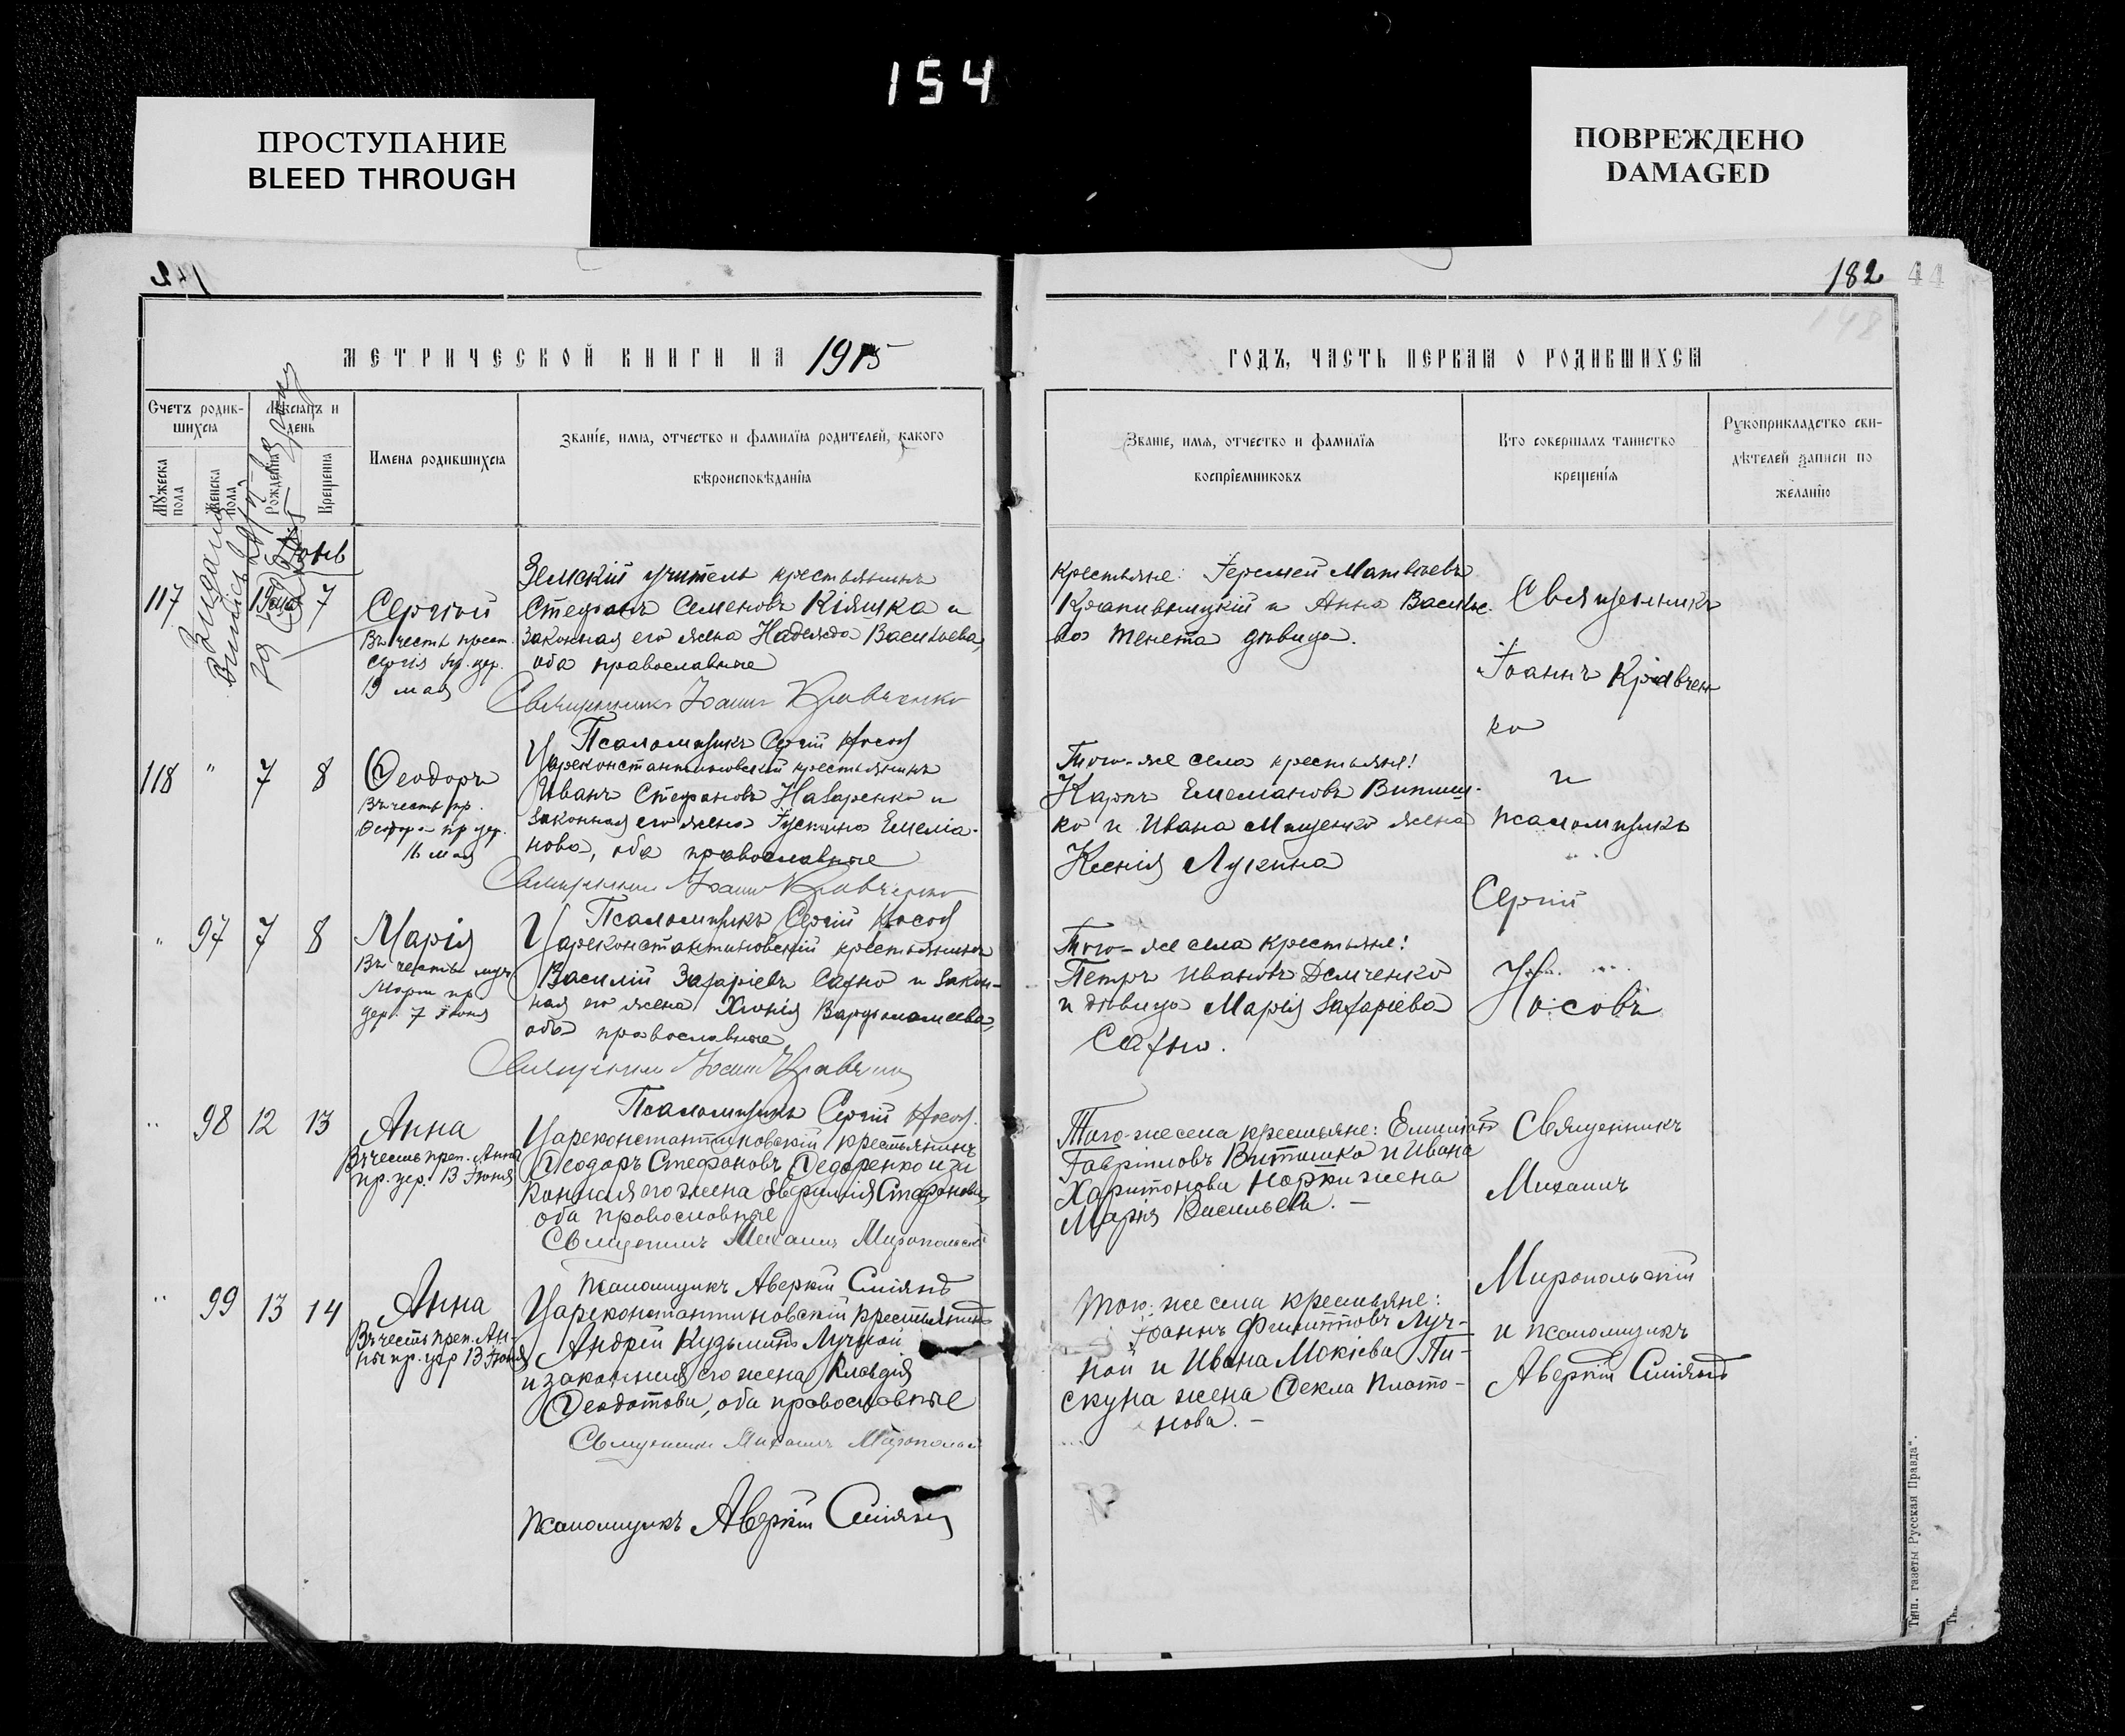 154
ПРОСТУПАНИЕ
BLEED THROUGH
ПОВРЕЖДЕНО
DAMAGED
182
44
МЕТРИЧЕСКОЙ КНИГИ НА 1915
ГОДЪ, ЧАСТЬ ПЕРВАЯ О РОДИВШИХСЯ
Счетъ родившихся
Мужеска пола
Женска пола
Мѣсяцъ и день
Рожденія
Крещенія
Имена родившихся
Званіе, имя, отчество и фамилія родителей, какого
вѣроисповѣданія
Званіе, имя, отчество и фамилія
воспріемниковъ
Кто совершалъ таинство
крещенія
Рукоприкладство сви-
дѣтелей записи по
желанію
117
7
Сергій
Въ честь преп.
Сергія пр. цер.
19 мая
Земскій учитель крестьянинъ
Стефанъ Семеновъ Кіяшка и
законная его жена Надежда Васильева,
оба православные
Священникъ Іоаннъ Кравченко
Псаломщикъ Сергій Носовъ
Крестьяне: Іеремей Матвѣевъ
Крапивницкій и Анна Василье-
ва Тенета дѣвица.
Священникъ
Іоаннъ Кравчен-
ко
и
псаломщикъ
Сергій
Носовъ
118 " 7 8
Ѳеодоръ
Въ честь пр.
Ѳеодора пр. цер.
16 мая
Цареконстантиновскій крестьянинъ
Иванъ Стефановъ Назаренко и
законная его жена Іустина Емеліа-
нова, оба православные
Священникъ Іоаннъ Кравченко
Псаломщикъ Сергій Носовъ
Того-же села крестьяне:
Карпъ Емеліановъ
ко и Ивана Мищенко жена
Ксенія Лукина
" 97 7 8
Марія
Въ честь муч.
Маріи пр.
цер. 7 Іюня
Цареконстантиновскій крестьянинъ
Василій Захаріевъ Сахно и закон-
ная его жена Хіонія Варфоломеева,
оба православные
Священникъ Іоаннъ Кравченко
Псаломщикъ Сергій Носовъ
Того-же села крестьяне:
Петръ Ивановъ Демченко
и дѣвица Марія Захаріева
Сахно.
" 98 12 13
Анна
Въ честь преп. Анны
пр. цер. 13 Іюня
Цареконстантиновскій крестьянинъ
Ѳеодоръ Стефановъ Ѳедоренко и за
конная его жена Стефанова,
оба православные
Священникъ Михаилъ Миропольскій
Псаломщикъ Аверкій
Того-же села крестьяне:
Гавріиловъ Витошко и Ивана
Харитонова жена
Марія Васильева. —
Священникъ
Михаилъ
Миропольскій
и псаломщикъ
Аверкій
" 99 13 14
Анна
Въ честь преп. Ан-
ны пр. цер. 13 Іюня
Цареконстантиновскій крестьянинъ
Андрей Кузьминъ Лучной
и законная его жена Клавдія
Ѳеодотова, оба православные
Священникъ Михаилъ Миропольскій
Псаломщикъ Аверкій
Того-же села крестьяне:
Іоаннъ Филипповъ Луч-
ной и Ивана Мокіева Пи-
скуна жена Ѳекла Плато-
нова. —
Тип. газеты „Русская Правда“.